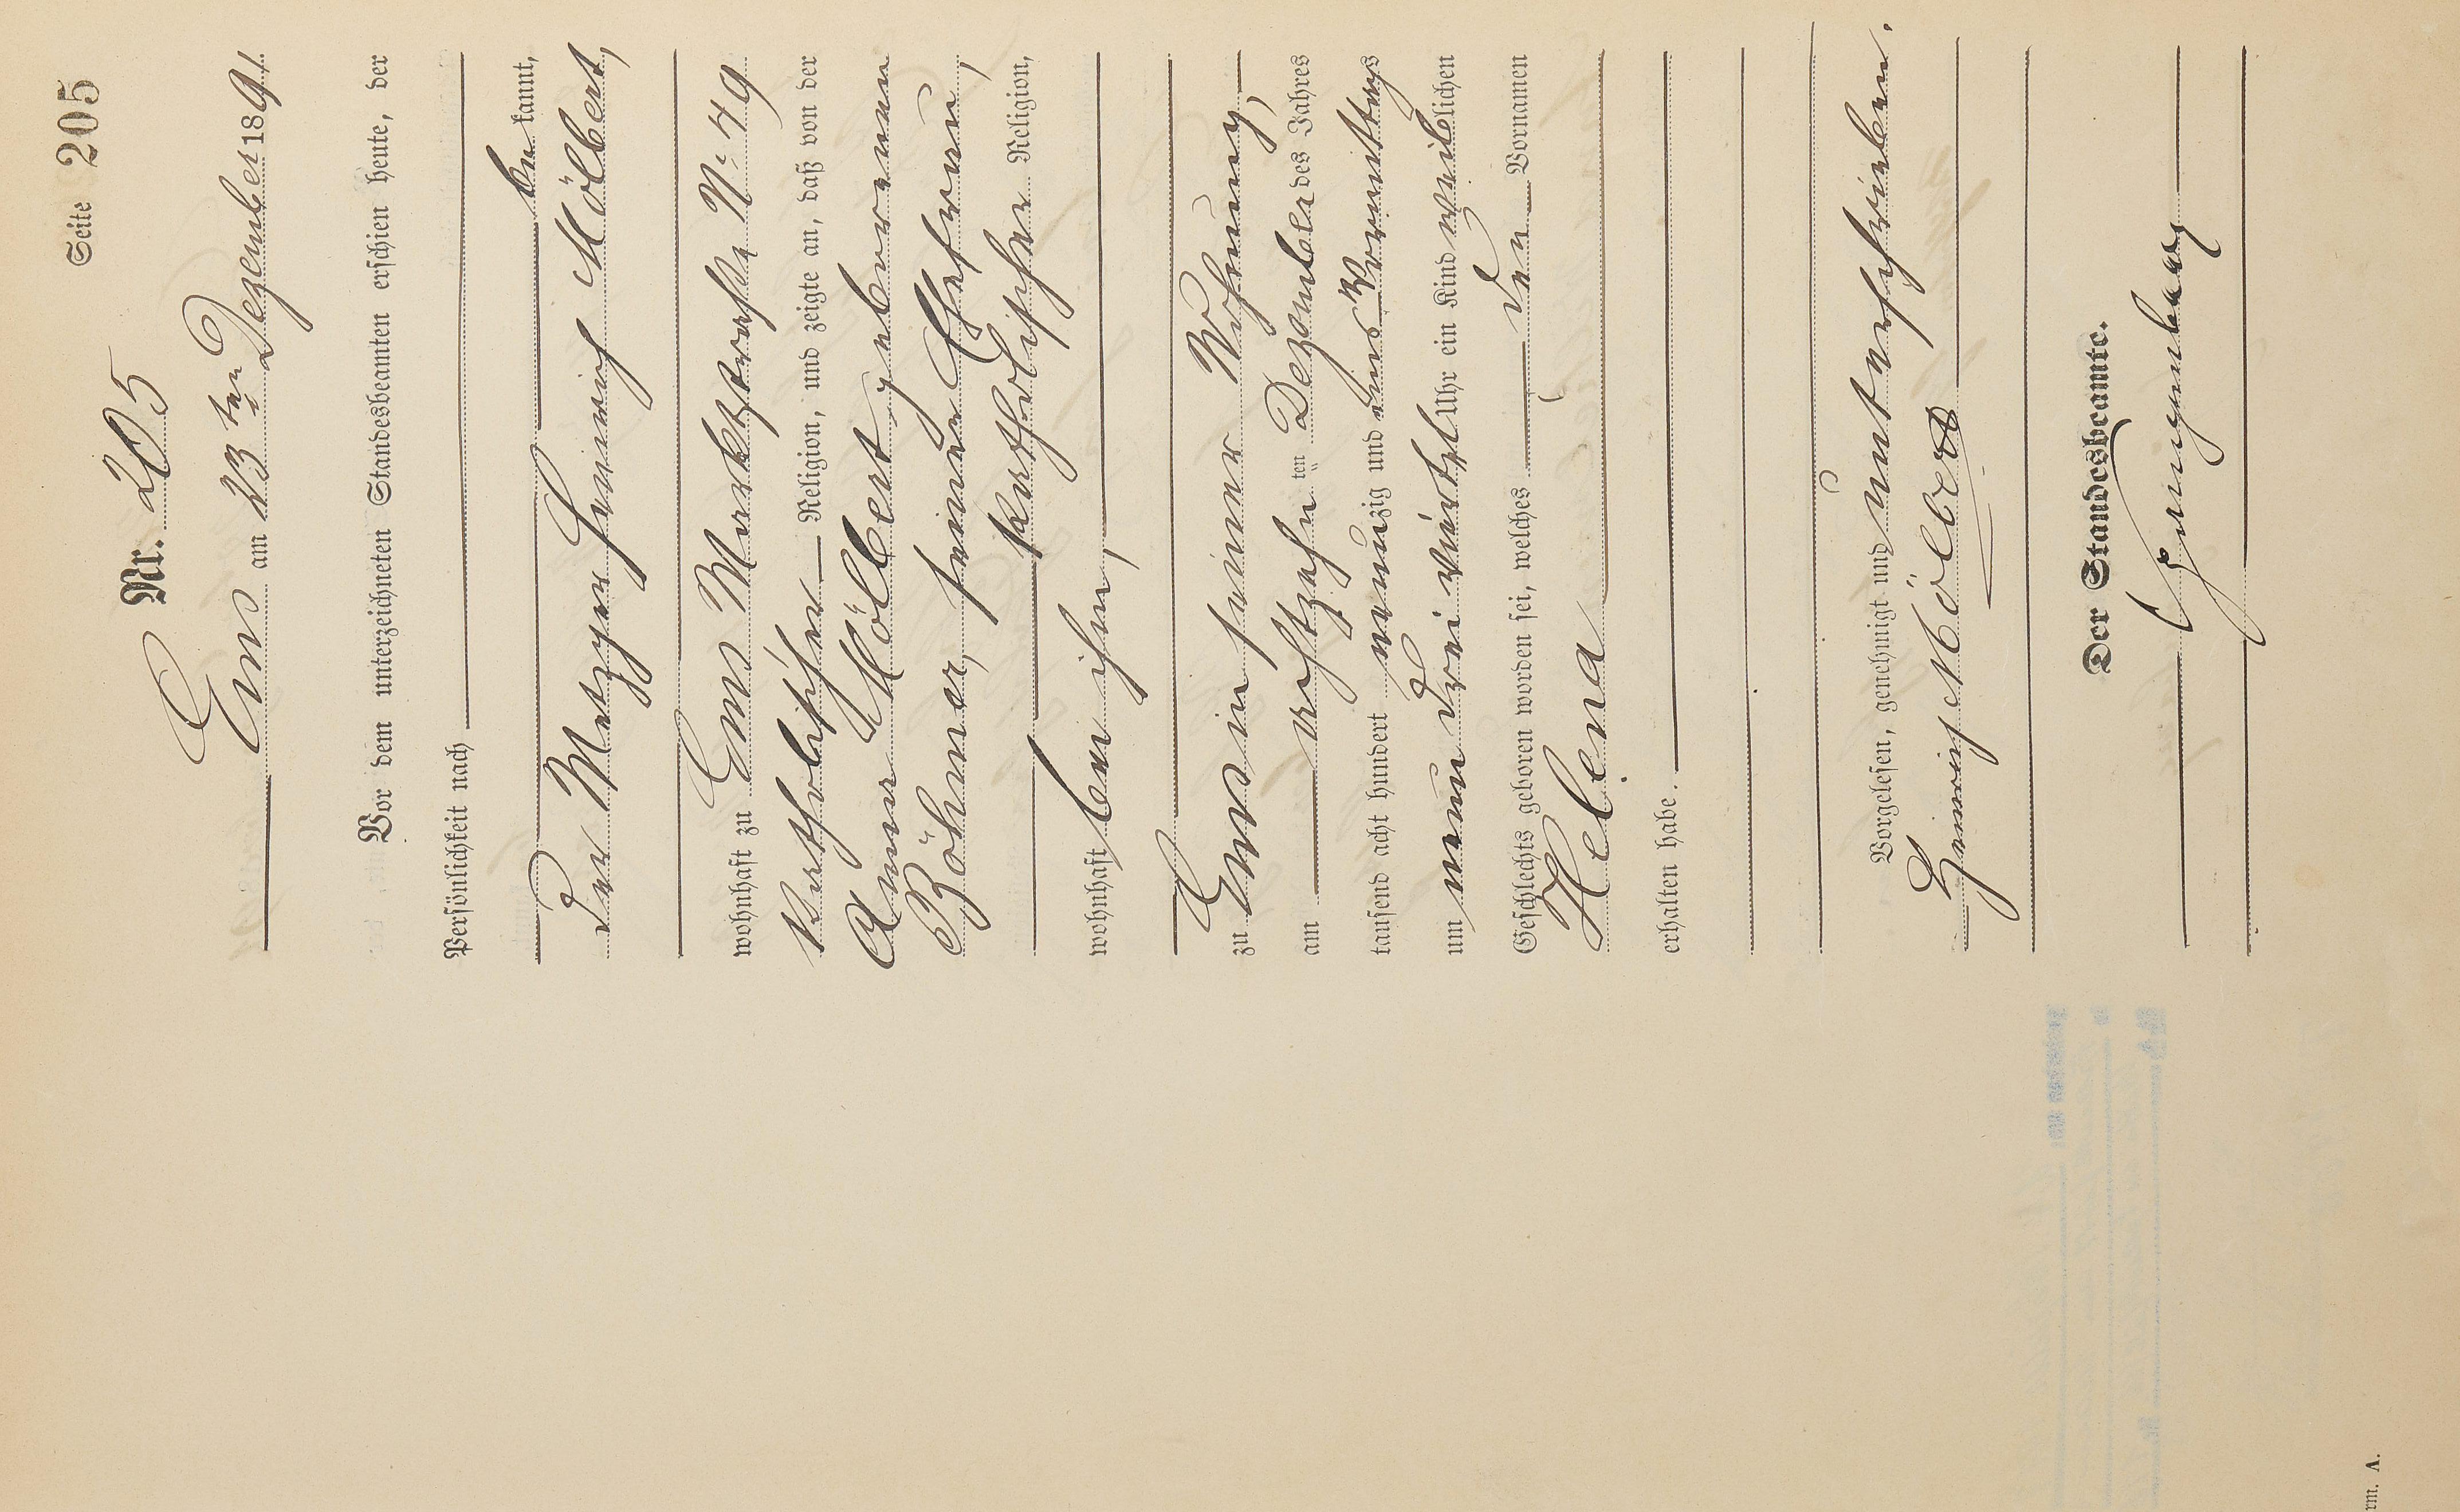 Seite 205
Nr. 205
Ems am 23ten Dezember 1891.
Vor dem unterzeichneten Standesbeamten erschien heute, der
Persönlichkeit nach
bekannt,
der Metzger Heinrich Mölbert,
wohnhaft zu Ems Marktstraße No 49
katholischer Religion, und zeigte an, daß von der
Anna Mölbert geborenen
Böhmer, seiner Ehefrau,
katholischer Religion,
wohnhaft bei ihm,
zu Ems in seiner Wohnung,
am achtzehnten Dezember des Jahres
tausend acht hundert neunzig und eins Vormittags
um neun drei viertel Uhr ein Kind weiblichen
Geschlechts geboren worden sei, welches den Vornamen
Helena
erhalten habe.
Vorgelesen, genehmigt und unterschrieben.
Heinrich Mölbert
Der Standesbeamte.
rm. A.